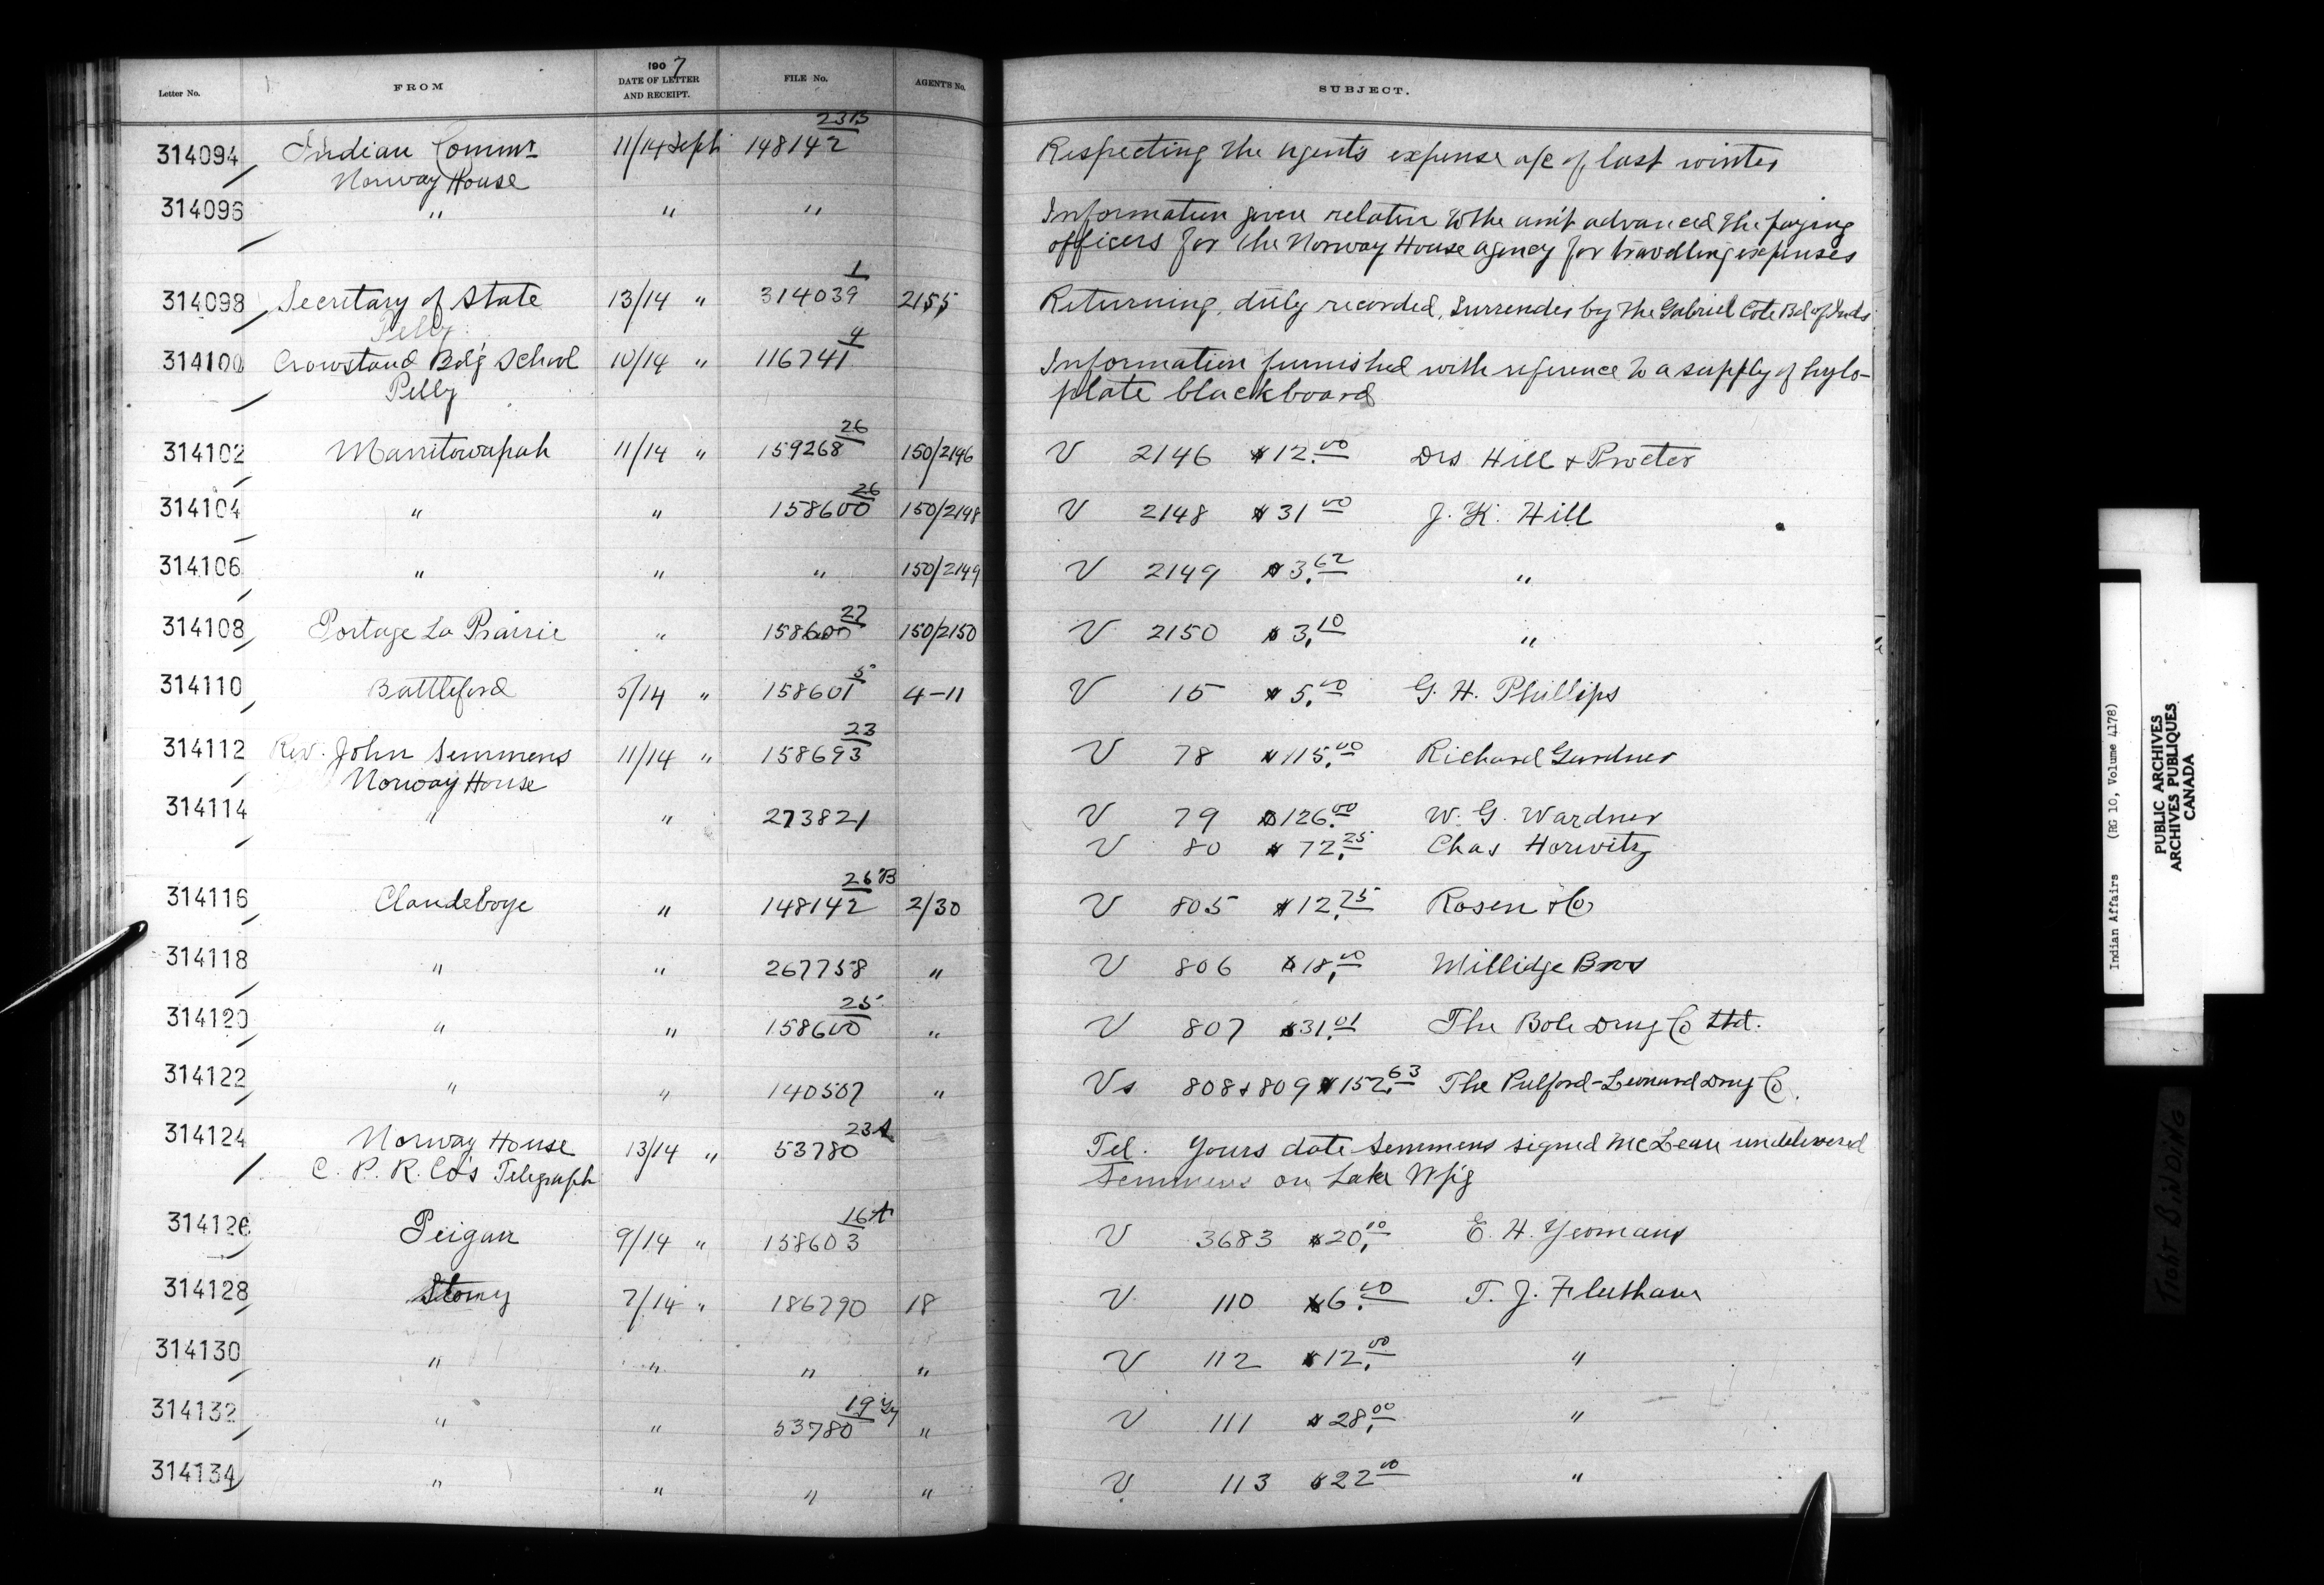 Letter No. FROM 1907 DATE OF LETTER AND RECEIPT. FILE No. AGENT'S No. SUBJECT.
23B
314094 Indian Commr 11/14 Sept 148142 Respecting the agent's expense a/c of last winter
Norway House
314096 " " " Information given relative to the am't advanced the paying
officers for the Norway House agency for travelling expenses
1
314098 Secretary of State 13/14 " 314039 2155 Returning, duly recorded, Surrender by the Gabriel Cote Bd of Inds
Pelly
4
314100 Crowstand Bd'g School 10/14 " 116741 Information furnished with reference to a supply of hylo-
Pelly plate blackboard
26
314102 Manitowapah 11/14 " 159268 150/2146 V 2146 $12.00 Drs Hill & Procter
26
314104 " " 158600 150/2148 V 2148 $31.00 J. K. Hill
314106 " " " 150/2149 V 2149 $3.62 "
27
314108 Portage La Prairie " 158600 150/2150 V 2150 $3.10 "
5
314110 Battleford 5/14 " 158601 4-11 V 15 $5.00 G. H. Phillips
23
314112 Rev. John Semmens 11/14 " 158693 V 78 $115.00 Richard Gardner
Norway House
314114 " " 273821 V 79 $126.00 W. G. Wardner
V 80 $72.25 Chas Horwitz
26 B
314116 Clandeboye " 148142 2/30 V 805 $12.75 Rosen & Co
314118 " " 267758 " V 806 $18.00 Millidge Bros
25
314120 " " 158600 " V 807 $31.01 The Bole Drug Co Ltd.
314122 " " 140507 " Vs 808 & 809 $152.63 The Pulford-Leonard Drug Co.
23A
314124 Norway House 13/14 " 53780 Tel. Yours date Semmens signed McLean undelivered
C. P. R. Co's Telegraph Semmens on Lake W'p'g
16A
314126 Peigan 9/14 " 158603 V 3683 $20.10 E. H. Yeomans
314128 Stony 7/14 " 186790 18 V 110 $6.00 T. J. Fleetham
314130 " " " " V 112 $12.00 "
19
314132 " " 53780 " V 111 $28.00 "
314134 " " " " V 113 $22.00 "
Indian Affairs (RG 10, Volume 4178)
PUBLIC ARCHIVES
ARCHIVES PUBLIQUES
CANADA
TIGHT BINDING